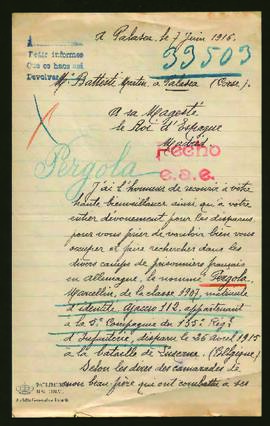 A Palasca, le 7 Juin 1916.
Pedir informes
Que se haus así
Devolver
33503
Mr Battesti Martin, a Palasca (Corse).
A sa Majesté
le Roi d'Espagne
Madrid
HECHO
e.a.e.
Pergola
J'ai l'honneur de recourir à votre
haute bienveillance ainsi qu'à votre
entier dévouement pour les disparus,
pour vous prier de vouloir bien vous
occuper et faire rechercher dans les
divers camps de prisonniers français
en Allemagne, le nommé Pergola
Marcellin, de la classe 1907, matricule
d'identité, Ajaccio 112, appartenant
à la 5e Compagnie du 135e Régt
d'Infanterie, disparu le 26 avril 1915
à la bataille de (Belgique)
Selon les dires des camarades de
mon beau frère qui ont combattu à ses
PATRIMONIO
NACIONAL